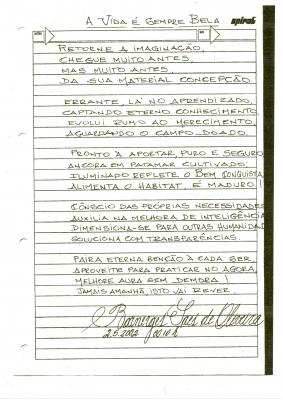 A VIDA É SEMPRE BELA
spiral
RETORNE A IMAGINAÇÃO,
CHEGUE MUITO ANTES,
MAS MUITO ANTES,
DA SUA MATERIAL CONCEPÇÃO
ERRANTE, LÁ NO APRENDIZADO,
CAPTANDO ETERNO CONHECIMENTO
EVOLUI RUMO AO MERECIMENTO,
AGUARDANDO O CAMPO DOADO.
PRONTO A APORTAR, PURO E SEGURO
ANCORA EM PATAMAR CULTIVADO,
ILUMINADO REFLETE O BEM CONQUISTA
ALIMENTA O HABITAT, É MADURO!
CÔNSCIO DAS PRÓPRIAS NECESSIDADES
AUXILIA NA MELHORA DE INTELIGÊNCIA
DIMENSIONA-SE PARA OUTRAS HUMANIDAD
SOLUCIONA COM TRANSPARÊNCIAS.
PAIRA ETERNA BENÇÃO À CADA SER,
APROVEITE PARA PRATICAR NO AGORA,
MELHORE AURA SEM DEMORA!
JAMAIS AMANHÃ, ISTO VAI REVER.
de Oliveira